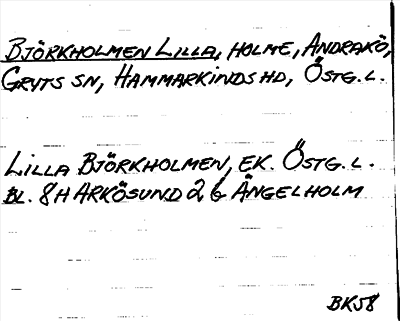 BJÖRKHOLMEN LILLA, HOLME, ANDRAKÖ,
GRYTS SN, HAMMARKINDS HD, ÖSTG. L.
LILLA BJÖRKHOLMEN, EK. ÖSTG. L.
BL. 8H ARKÖSUND 2 b ÄNGELHOLM
BK58